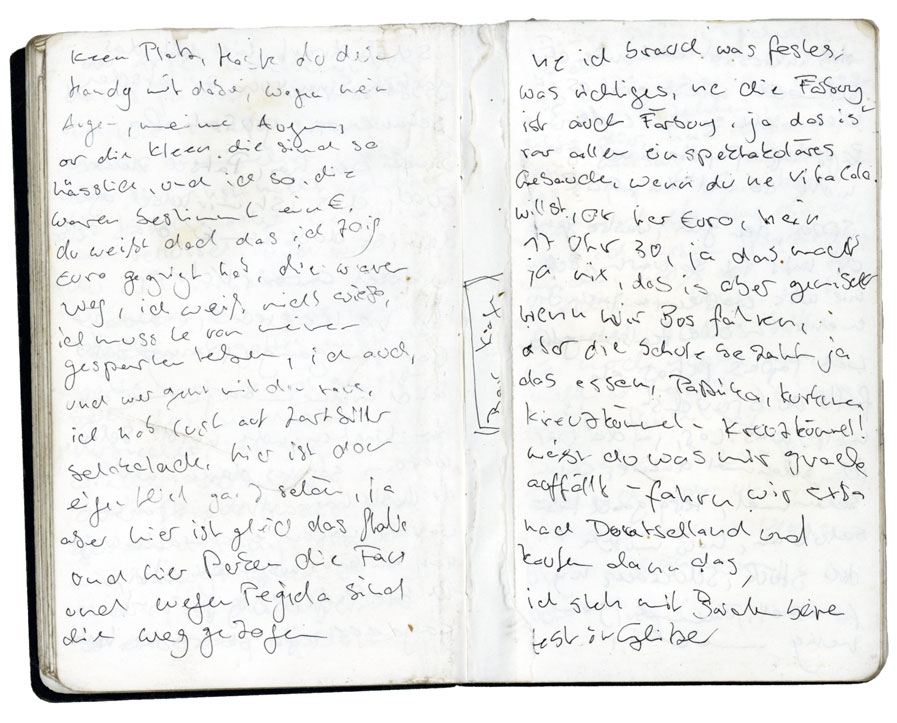 keen Platz, hast du dein
Handy mit dabei, wegen mein
Augen, meine Augen,
or die kleen, die sind so
hässlich, und ich so, die
waren bestimmt ein €,
du weißt doch das ich 70ig
Euro gekriegt hab, die waren
weg, ich weiß nicht wieso,
ich musste von meinen
gesparten leben, ich auch,
und wer geht mit den raus,
ich hab Lust auf zartbitter
schokolade, hier ist doch
eigentlich ganz schön, ja
aber hier ist gleich das
und hier die Fans
und wegen Pegida sind
die weggezogen
ne ich brauch was festes,
was richtiges, ne die Färbung
ist auch Färbung, ja das ist
vor allem ein spektakuläres
Gebäude, wenn du ne Vita Cola
willst, vier Euro, nein
17 Uhr 30, ja das macht
ja nix, das is aber gemischt
wenn wir Bos fahren,
aber die Schule bezahlt ja
das essen, Paprika,
Kreuzkümmel - Kreuzkümmel!
weißt du was mir grade
auffällt - fahren wir extra
nach Deutschland und
kaufen dann das,
ich steh mit beiden beine